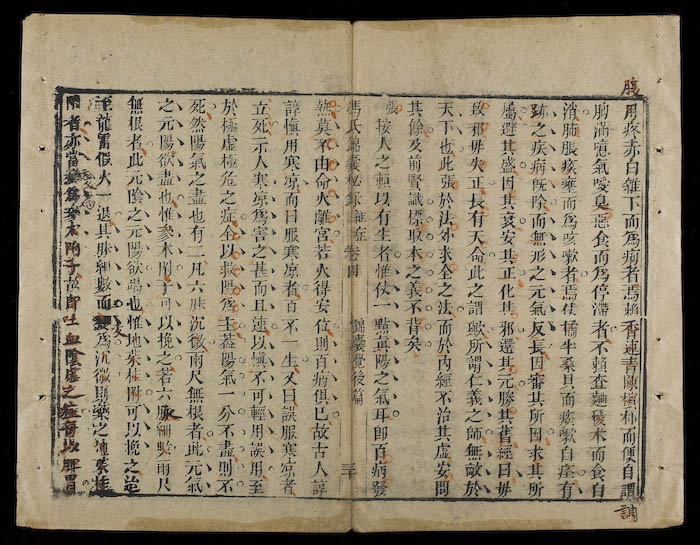 腹
用疼赤白雜下而為痢者焉賴香連菁陳檳朴而便自調
調
胸滿噫氣噯臭惡食而為停滯者不賴查麯蘗朮而食自
消肺脹痰壅而為咳嗽者焉仗橘半桑貝而痰嗽自痊有
跡之疾病旣除而無形之元氣反長因審其所因求其所
屬避其盛因其衰安其正化其邪還其元勝其舊經曰毋
致邪毋失正長有天命此之謂歟所謂仁義之師無敵於
天下也此張於法外求全之法而於內經不治其虛安問
其餘及前賢識標取本之義不背矣
張
按人之賴以有生者惟仗一點真陽之氣耳卽百病發
馮氏錦囊秘錄 雜症 卷四 錦囊覺後篇 三十
熱莫不由命火離宮若火得安位則百病俱已故古人諄
諄慎用寒凉而曰服寒凉者百不一生又曰誤服寒凉者
立死示人寒凉為害之甚而且速以慎不可輕用誤用至
於極虛極危之症全以救陽為主蓋陽氣一分不盡則不
死然陽氣之盡也有二凡六脉沉微兩尺無根者此元氣
之元陽欲盡也惟參朮附子可以挽之若六脉細數兩尺
無根者此元陰之元陽欲竭也惟地萸桂附可以挽之迨
至龍雷假火一退其脉細數而變為沉微則藥之地萸桂
附者亦當變為參朮附子卽吐血陰虛之極以脾胃